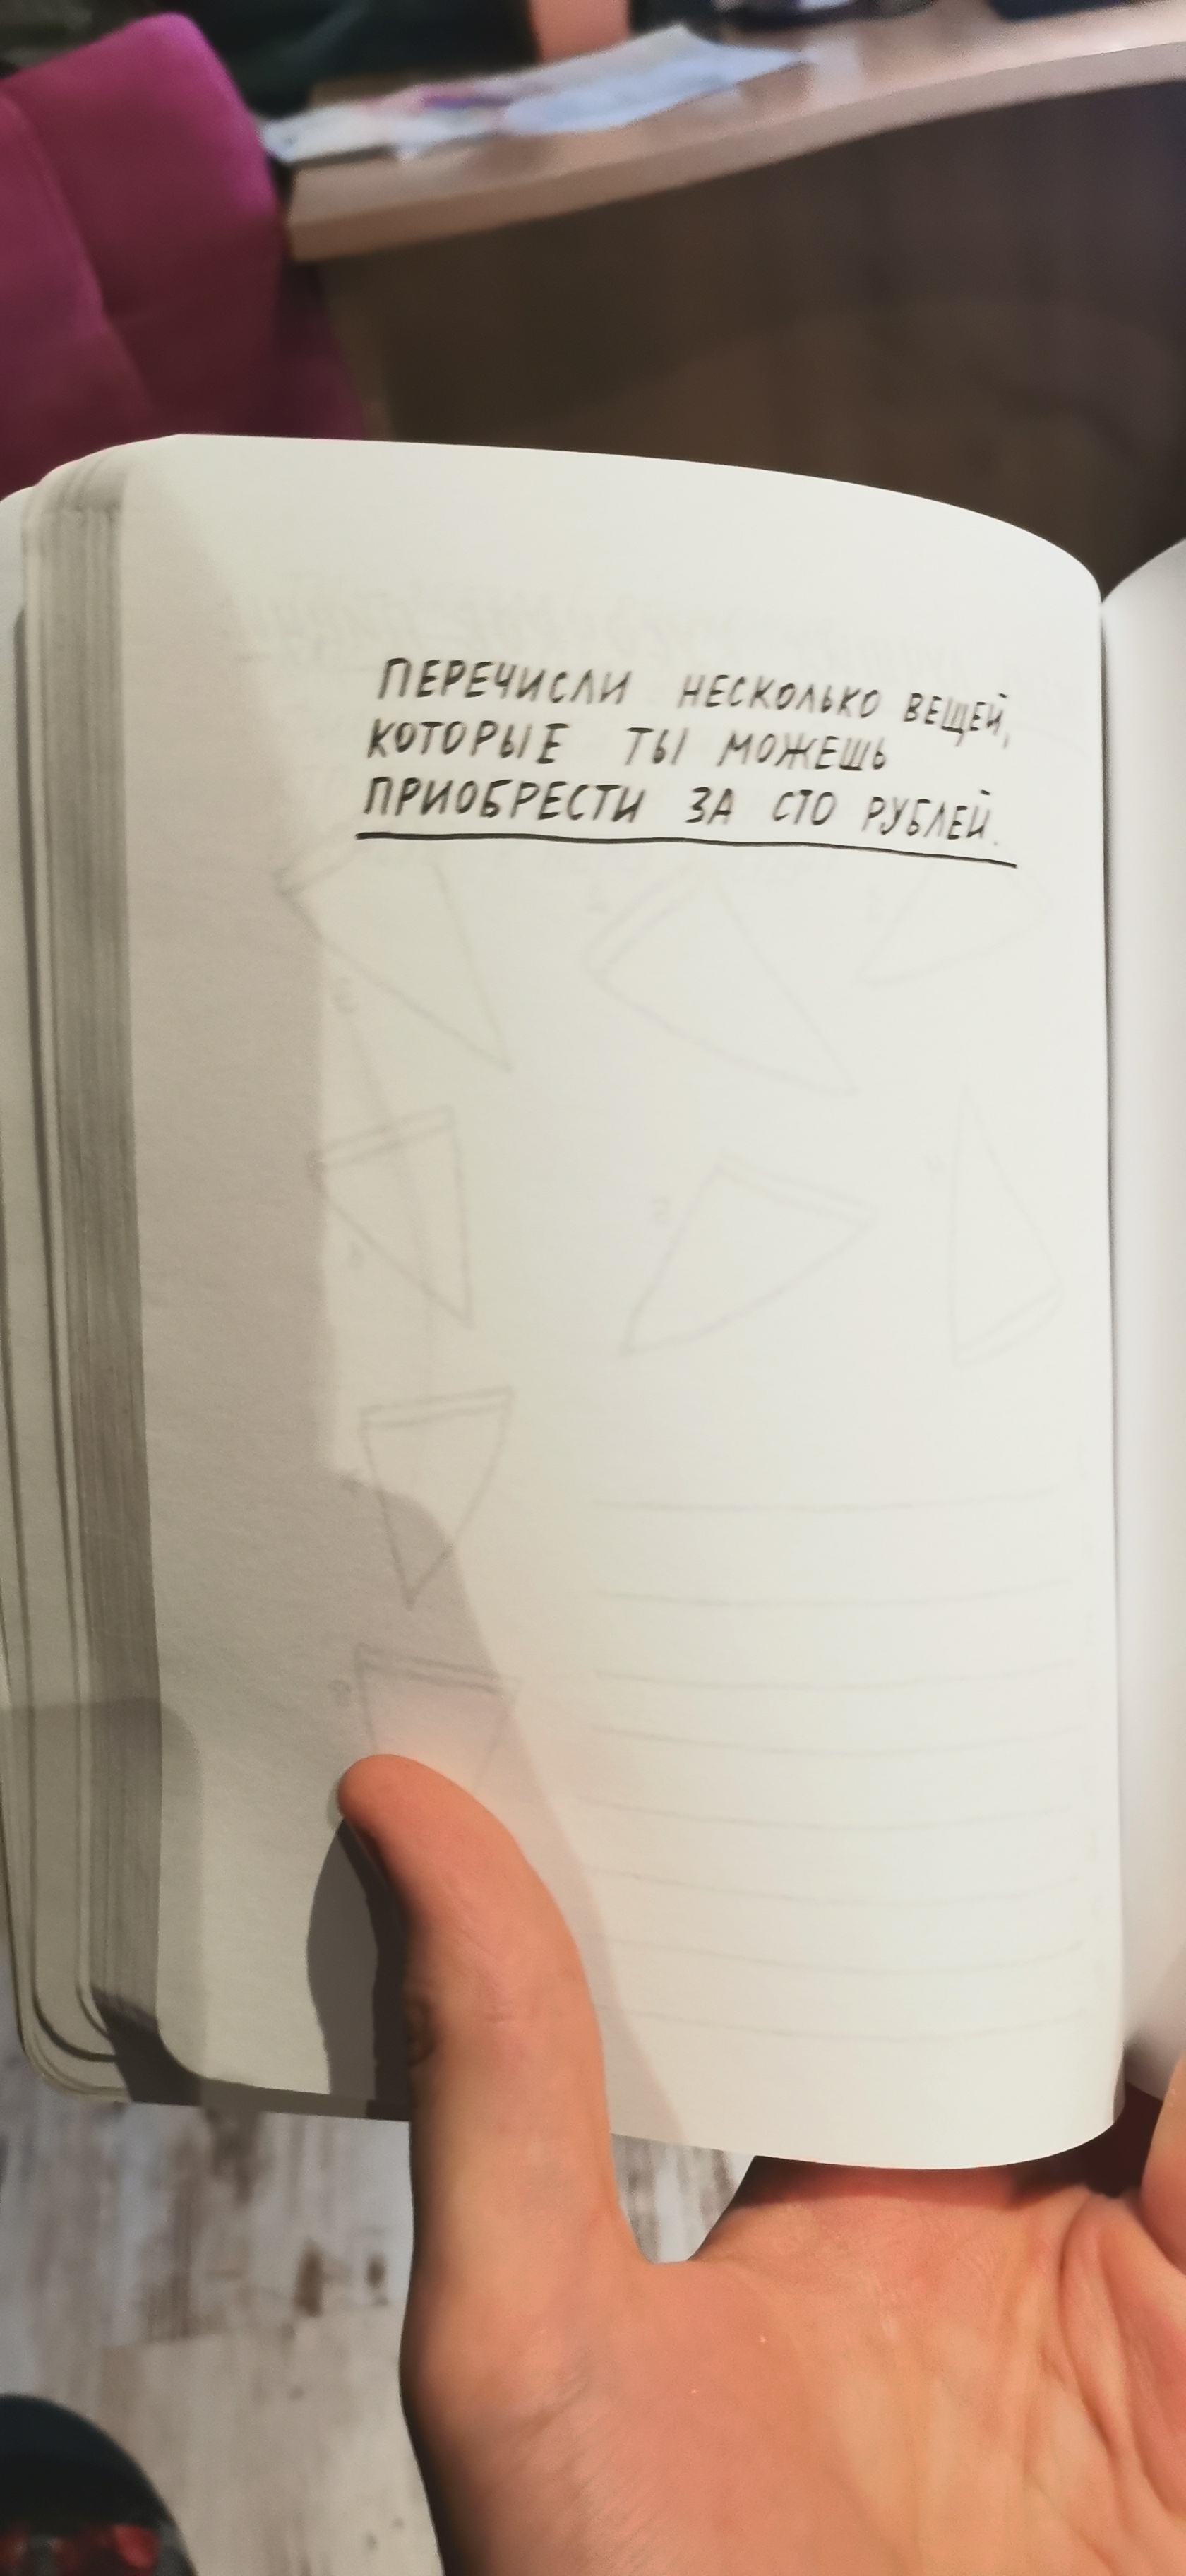 ПЕРЕЧИСЛИ НЕСКОЛЬКО ВЕЩЕЙ,
КОТОРЫЕ ТЫ МОЖЕШЬ
ПРИОБРЕСТИ ЗА СТО РУБЛЕЙ.